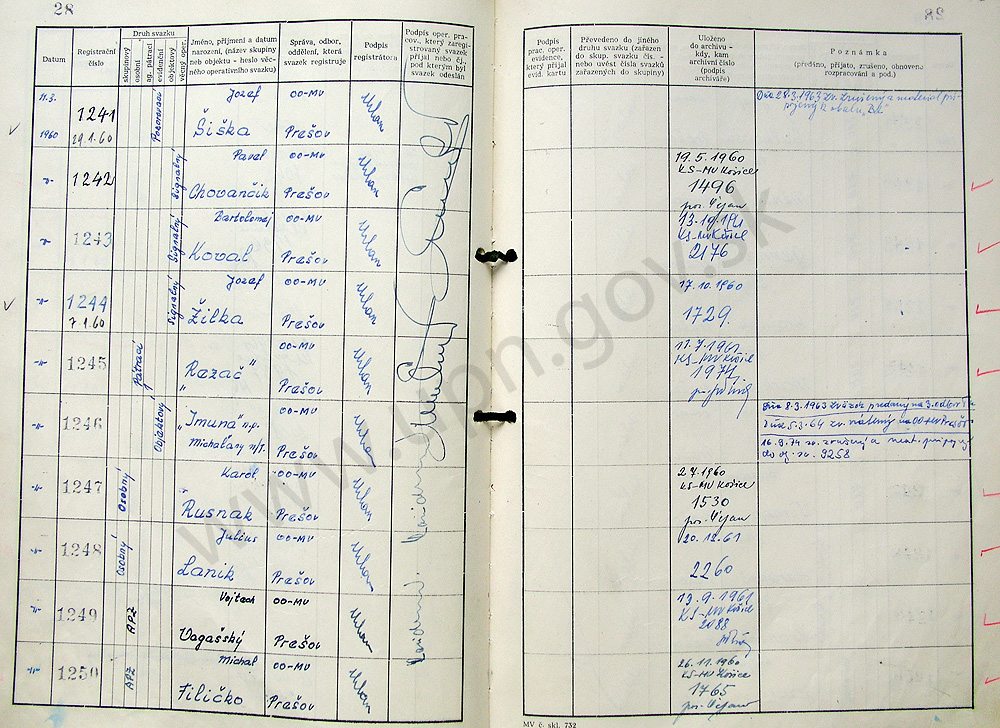 28
Datum
Registrační číslo
Druh svazku
skupinový
osobní
ag. pátrací
evidenční
objektový
věcný oper.
Jméno, příjmení a datum
narození, (název skupiny
neb objektu - heslo věc-
ného operativního svazku)
Správa, odbor,
oddělení, která
svazek registruje
Podpis
registrátora
Podpis oper. pra-
cov., který zaregi-
strovaný svazek
přijal nebo čj.,
pod kterým byl
svazek odeslán
1960
1241
29.1.60
Pozorovací
Jozef
Šiška
OO-MV
Prešov
Urban
1242
Signálný
Pavel
Chovančík
OO-MV
Prešov
Urban
1243
Signálný
Bartolomej
Koval
OO-MV
Prešov
Urban
1244
7.1.60
Signálný
Jozef
Žilka
OO-MV
Prešov
Urban
1245
Pátrací
"Kazač"
OO-MV
Prešov
Urban
1246
Objektový
"Imuna" n.p.
Michaľany n/T.
OO-MV
Prešov
Urban
1247
Osobný
Karol
Rusnak
OO-MV
Prešov
Urban
1248
Osobný
Július
Lanik
OO-MV
Prešov
Urban
1249
APZ
Vojtech
Vagašský
OO-MV
Prešov
Urban
1250
APZ
Michal
Filičko
OO-MV
Prešov
Urban
28
Podpis
prac. oper.
evidence,
který přijal
evid. kartu
Převedeno do jiného
druhu svazku (zařazen
do skup. svazku čís. -
nebo uvést čísla svazků
zařazených do skupiny)
Uloženo
do archivu -
kdy, kam
archivní číslo
(podpis
archiváře)
Poznámka
(předěno, přijato, zrušeno, obnoveno
rozpracování a pod.)
Dňa 28.3.1963 zv. zrušený a materiál pri-
pojený k obalu
19.5.1960
KS-MV Košice
1496
KS-MV Košice
2176
17.10.1960
1729.
KS-MV Košice
1971
Dňa 8.3.1963 zväzok predaný na 3. odbor
Dňa 5.3.64 zv. vrátený na OO-MV Prešov
16.9.74 zv. zrušený a mat. pripojený
do oj. zv. 9258
KS-MV Košice
1530
20.12.61
2260
13.9.1961
KS-MV Košice
2088
26.11.1960
KS-MV Košice
1765
MV č. skl. 732
www.upn.gov.sk